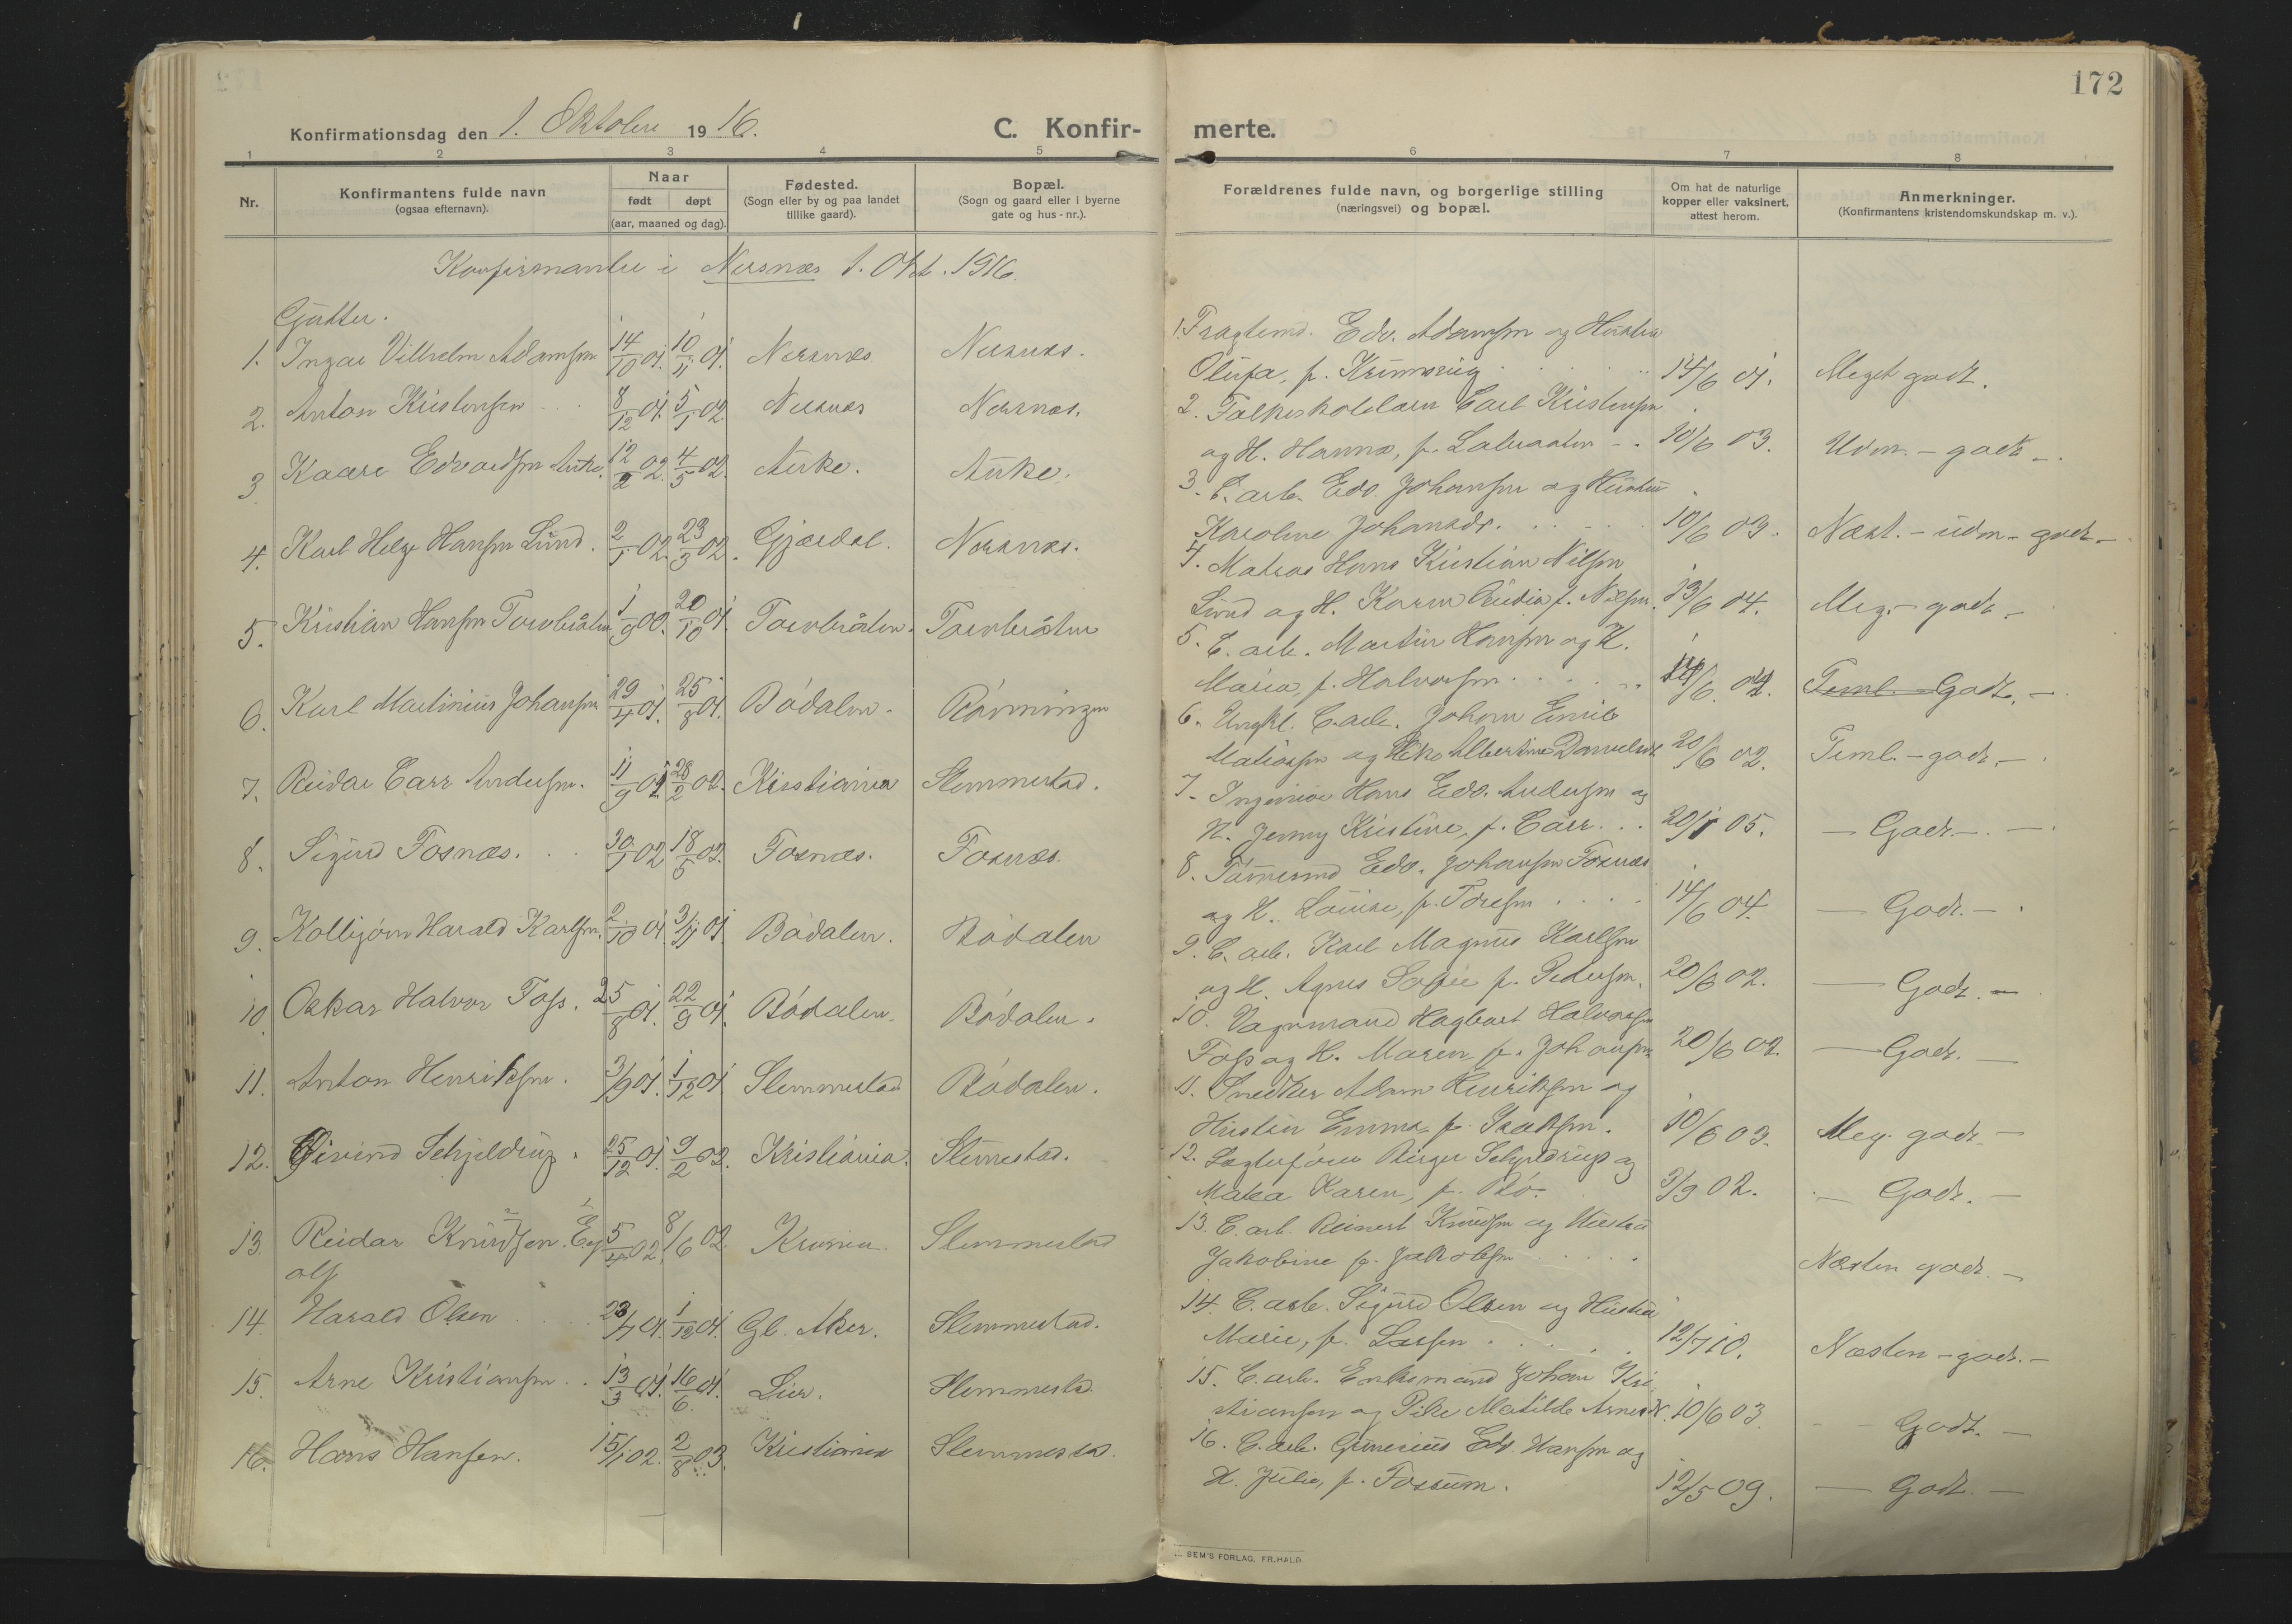 172
Konfirmationsdag den 1. Oktober 1916. C. Konfir- merte.
1 2 3 4 5 6 7 8
Nr.
Konfirmantens fulde navn
(ogsaa efternavn).
Naar
født døpt
(aar, maaned og dag).
Fødested.
(Sogn eller by og paa landet
tillike gaard).
Bopæl.
(Sogn og gaard eller i byerne
gate og hus-nr.).
Forældrenes fulde navn, og borgerlige stilling
(næringsvei) og bopæl.
Om hat de naturlige
kopper eller vaksinert,
attest herom.
Anmerkninger.
(Konfirmantens kristendomskundskap m. v.).
Konfirmanter i Nersnæs 1. Okt. 1916.
Gutter.
1. Ingar Vilhelm Adamsen 14/10 01. 10/11 01. Nersnæs Nersnæs.
1. Fragtemd. Edv. Adamsen og Hustru
Olufa, f. 14/6 01. Meget godt.
2. Anton Kristensen 8/12 01. 5/1 02. Nersnæs Nersnæs.
2. Folkeskolelærer Carl Kristensen
og H. Hanna, f. 10/6 03. Udm. - godt -.
3 Kaare Edvardsen Auke. 12/2 02. 4/5 02. Auke. Auke.
3. C. arb. Edv. Johansen og Hustru
Karoline Johansdr. 10/6 03. Næst. - udm - godt -
4. Karl Helge Hansen Lund. 2/1 02. 23/3 02. Gjærdal. Nersnæs.
4. Matros Hans Kristian Nilsen
Lund og H. Karen f. Nilsen. 13/6 04. Meg. - godt -
5. Kristian Hansen Torvbråten 1/9 00. 20/10 01. Torvbråten. Torvbråten
5. C. arb. Martin Hansen og H.
Maria, f. Halvorsen 14/6 04. Teml. Godt. -
6. Karl Martinius Johansen 29/4 01. 25/8 01. Bödalen. Rönningen
6. Ungkl. C. arb. Johan Emil
Matiassen og Pike Albertine Danielsdr. 20/6 02. Teml. - godt. -
7. Reidar Carr Andersen. 11/9 01. 28/2 02. Kristiania Slemmestad.
7. Ingeniør Hans Edv. Andersen og
H. Jenny Kristine, f. Carr. 20/1 05. - Godt. -
8. Sigurd Fosnæs. 30/1 02 18/5 02. Fosnæs. Fosnæs.
8. Tømmermd Edv. Johansen Fosnæs
og H. Louise, f. Toresen 14/6 04. - Godt. -
9. Kolbjörn Harald Karlsen. 2/10 01. 3/11 01. Bödalen. Bödalen
9. C. arb. Karl Magnus Karlsen
og H. Agnes Sofie f. Pedersen. 20/6 02. - Godt. -
10. Oskar Halvor Foss. 25/8 01. 22/9 01. Bödalen. Bödalen.
10. Vognmand Hagbart Halvorsen
Foss og H. Maren f. Johansen 20/6 02. - Godt. -
11. Anton Henriksen. 3/9 01. 1/12 01. Slemmestad Bödalen.
11. Snedker Adam Henriksen og
Hustru Emma f. Isaksen. 10/6 03. Meg. godt -
12. Eivind Schjeldrup. 25/12 01. 9/2 02. Kristiania. Slemestad.
12. Birger Schjeldrup og
Karen, f. Bö. 3/9 02. - Godt. -
13. Reidar Knudsen. Ey 5/4 02. 8/6 02 Krania. Slemmestad
olf
13. C. arb. Reinert Knudsen og Hustru
Jakobine f. Jakobsen Næsten godt. -
14. Harald Olsen 23/7 01. 1/12 01. Gl. Aker. Slemmestad.
14. C. arb. Sigurd Olsen og Hustru
Marie, f. Larsen 12/7 10. Næsten - godt. -
15. Arne Kristiansen 13/3 01. 16/6 01. Lier. Slemmestad.
15. C. arb. Enkemand Johan Kri-
stiansen og Pike Matilde Arnesdr. 10/6 03. - - Godt. -
16. Hans Hansen. 15/1 02. 2/8 03. Kristiania Slemmestad.
16. C. arb. Gunerius Edv. Hansen og
H. Julie, f. Fossum. 12/5 09. - Godt. -
SEM'S FORLAG, FR.HALD